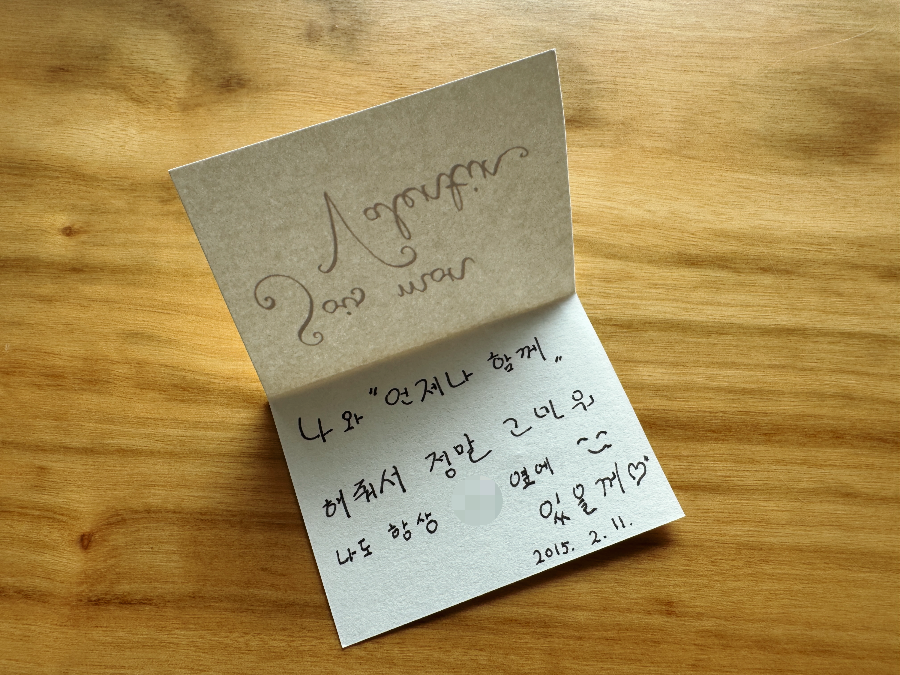 Sois mon
Valentin
나와 "언제나 함께"
해줘서 정말 고마워
나도 항상 옆에
있을께♡
2015. 2. 11.